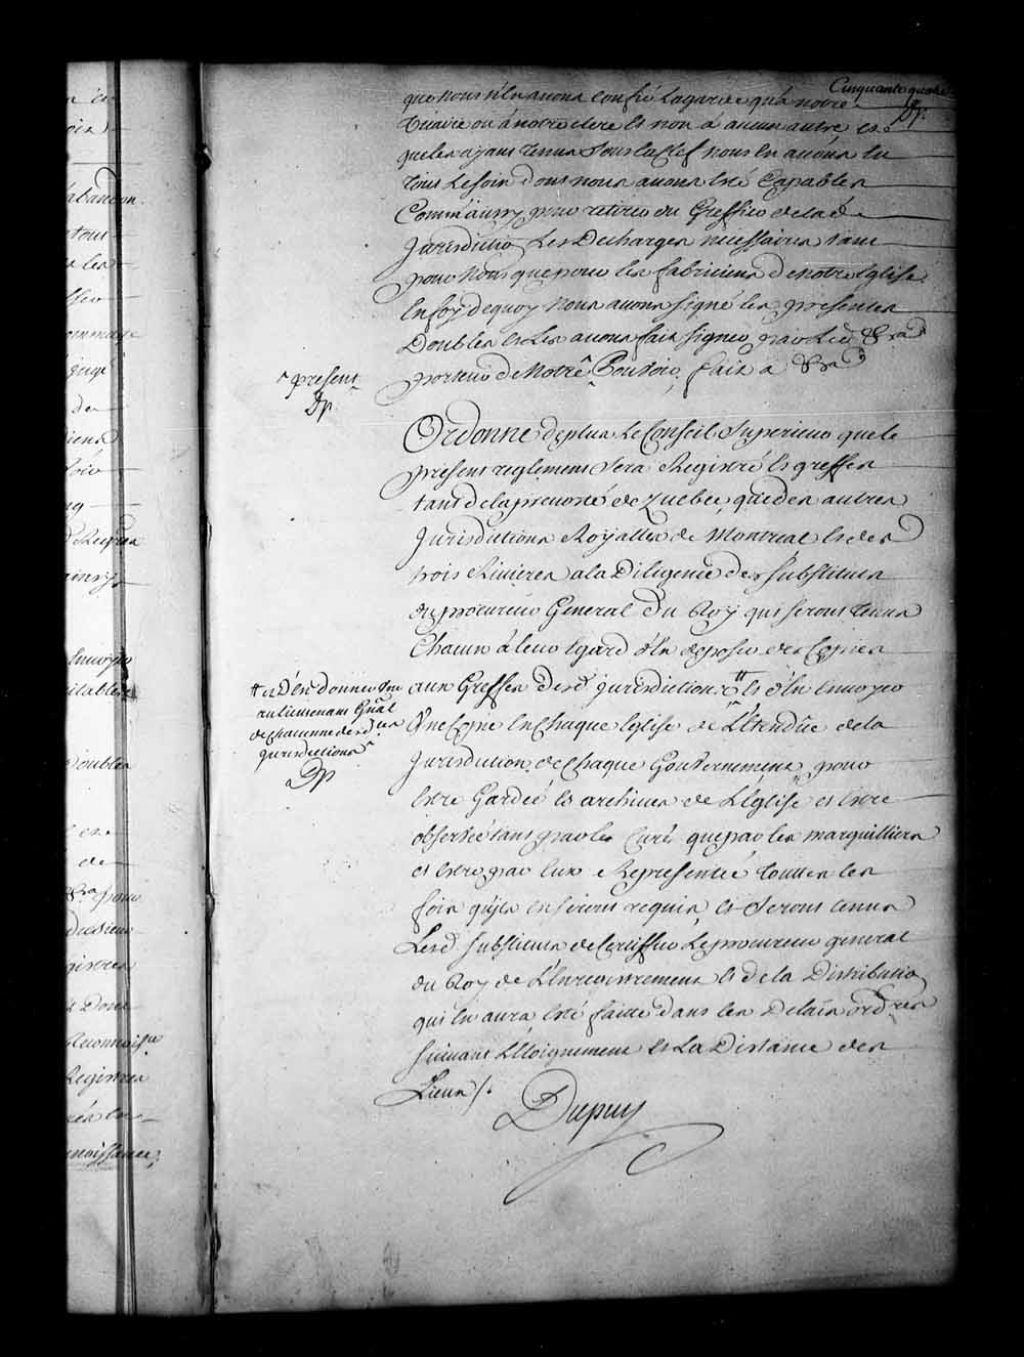 Cinquante quatre
Dp.
que nous n'en avons confié la garde qu'a notre
Vicaire ou à notre clerc et non à aucun autre et
que les ayant tenus sous la clef nous en avons eu
tous le soin dont nous avons esté capables
Comm'aussy pour retirer du Greffier de lad.
Jurisdictio les Decharges necessaires tant
pour Nous que pour les fabriciens de Notre Eglise
en foy de quoy nous avons signé les presentes
Doubles et les avons fait signer par led. &ra
porteur de Notre ^ Pouvoir, fait a &ra
^ present
Dp
Ordonne de plus Le Conseil Superieur que le
present reglement sera Registré es greffes
tant de la prevosté de Quebec, que des autres
Jurisdictions Royalles de Montreal et des
trois Rivieres a la Diligence des substituts
du procureur General Du Roy qui seront tenus
Chacun à leur Egard d'en deposer des Copies
aux Greffes desd. jurisdictions # et d'en envoyer
# et D'en donner une
au Lieutenant Gnal
de chacunne desd. es
jurisdictions
Dp
Une Copie en Chaque Eglise de L'Etendüe de la
Jurisdiction de Chaque Gouvernement, pour
Estre Gardée es archives de L'Eglise et Estre
observée tant par les Curés que par les marguilliers
et Estre par Eux Representée touttes les
fois qu'jls en seront requis, et seront tenus
Lesd. substituts de Certiffier Le procureur general
du Roy de L'Enregistrement et de la Distributio
qui en aura Esté faitte dans les Delais ord.res
suivant L'Eloignement et La Distance des
Lieux /.
Dupuy